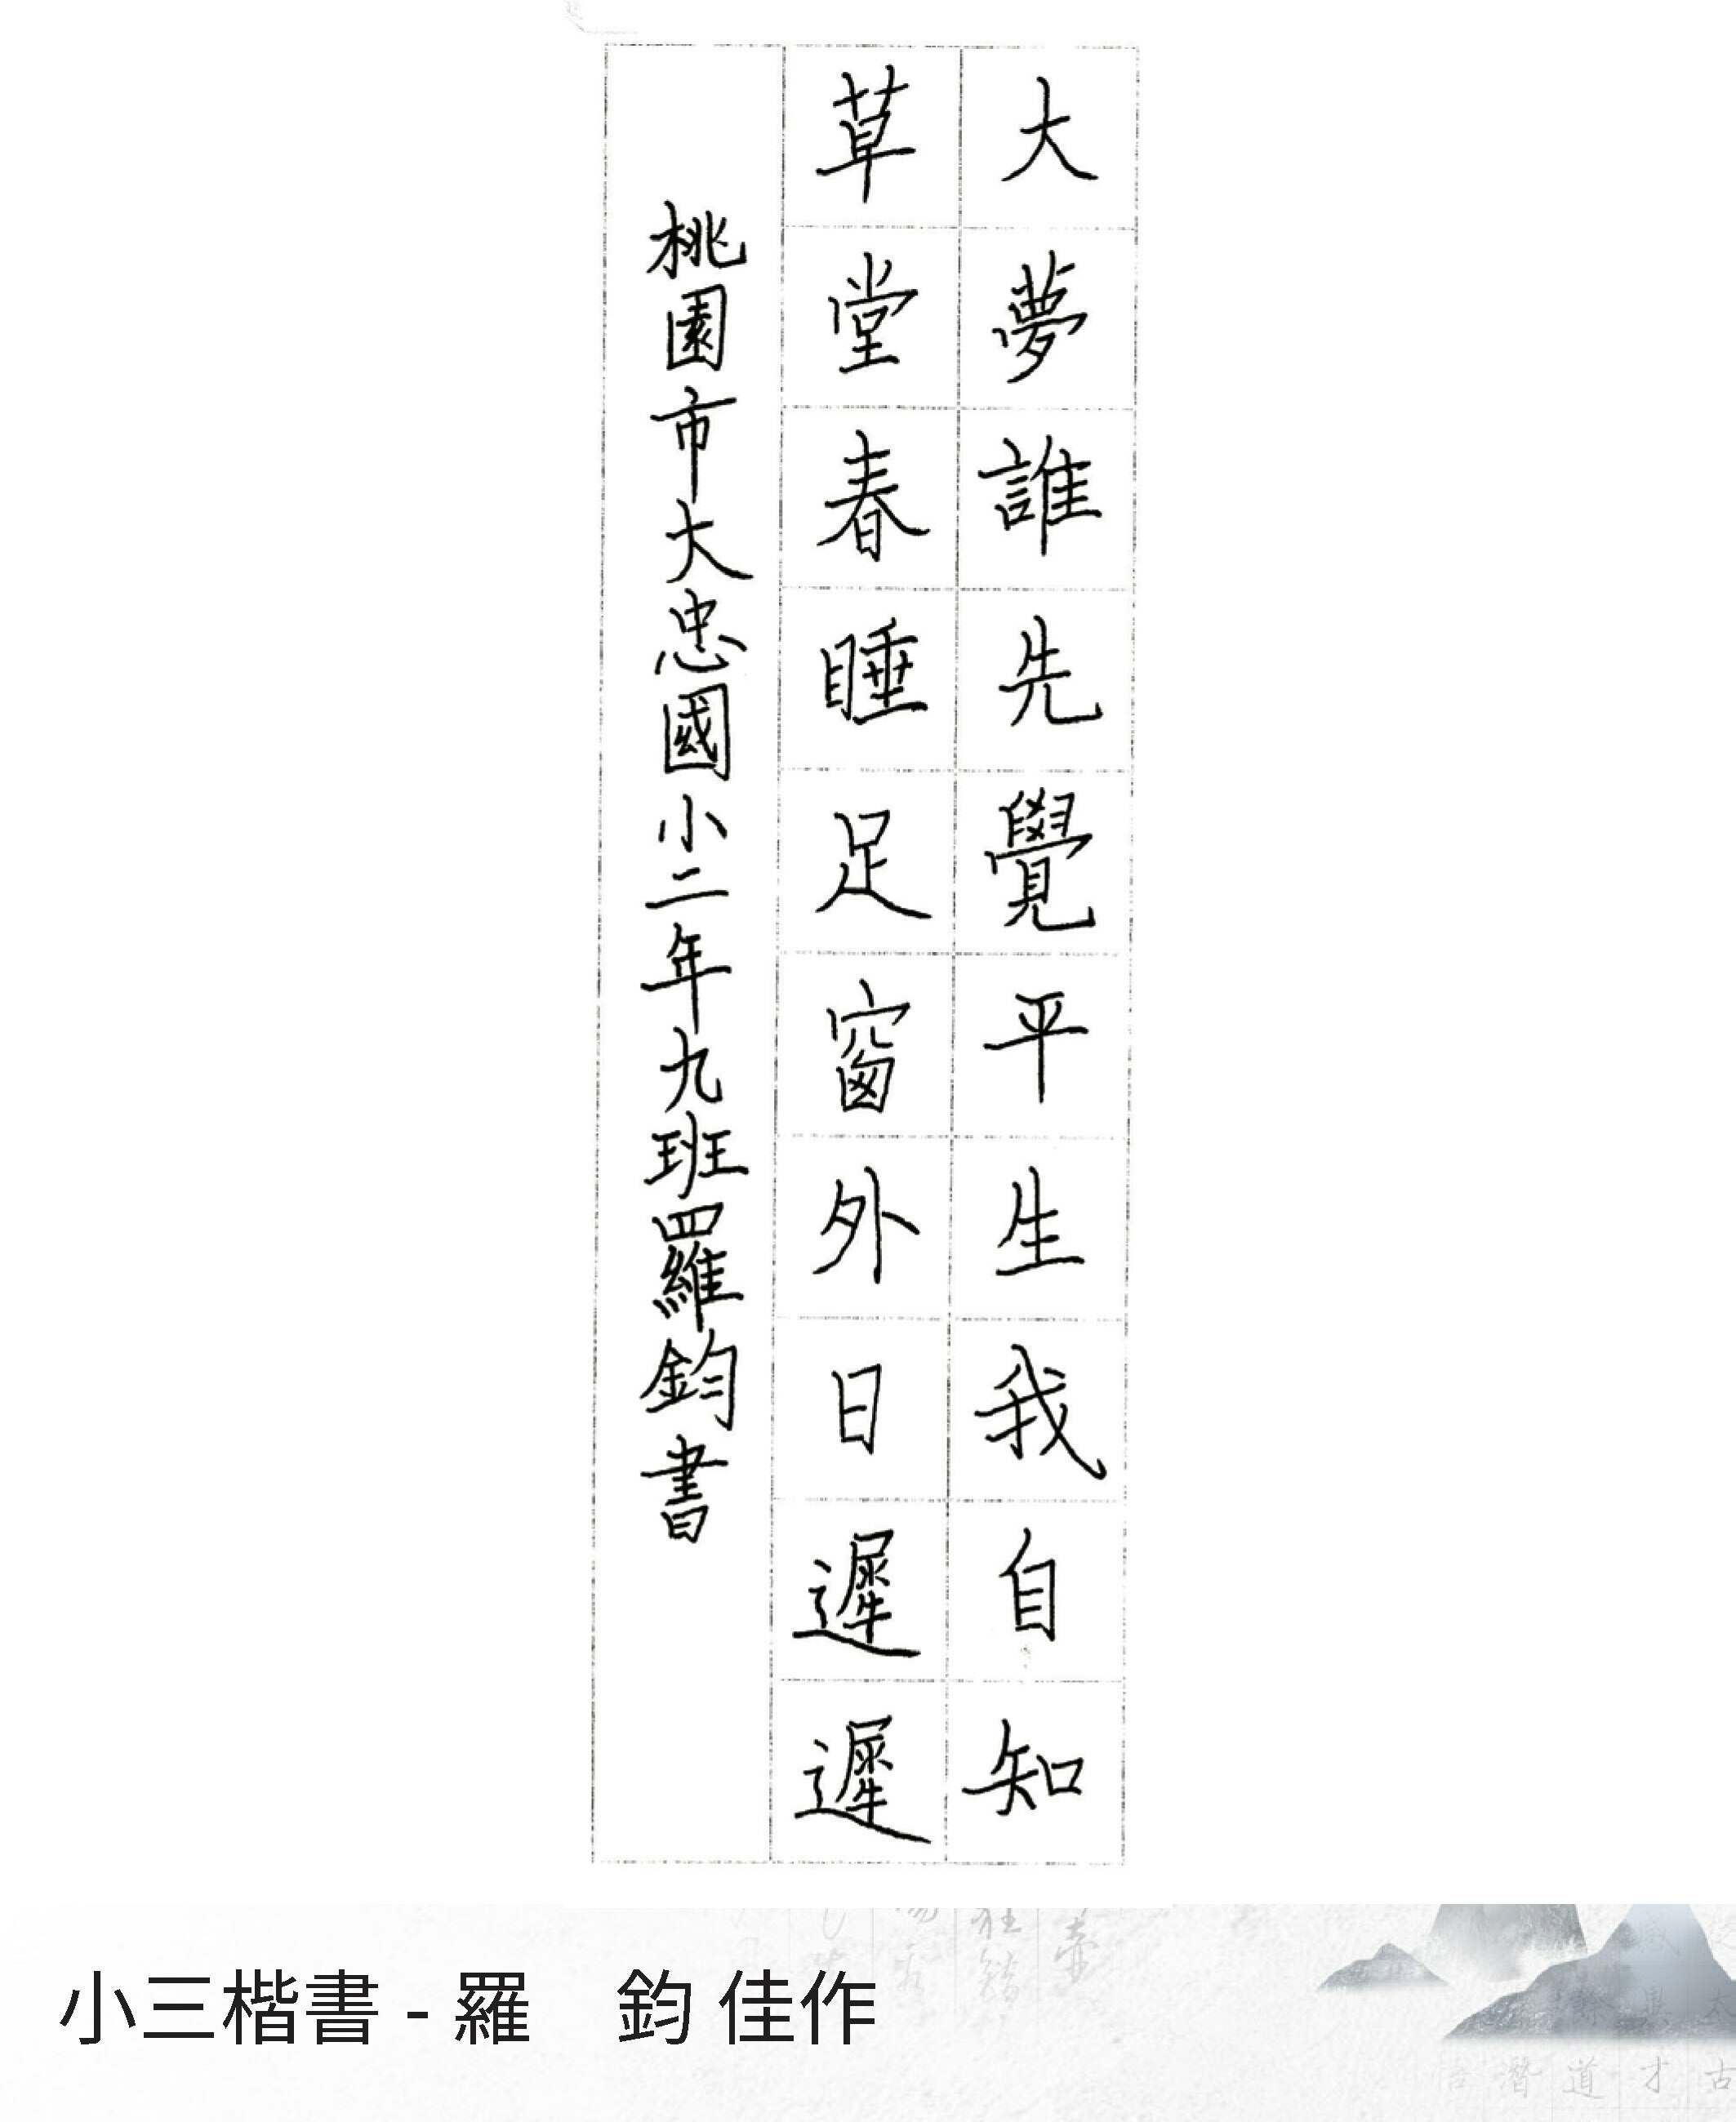 大夢誰先覺平生我自知
草堂春睡足窗外日遲遲
桃園市大忠國小二年九班羅鈞書
小三楷書 - 羅　鈞 佳作